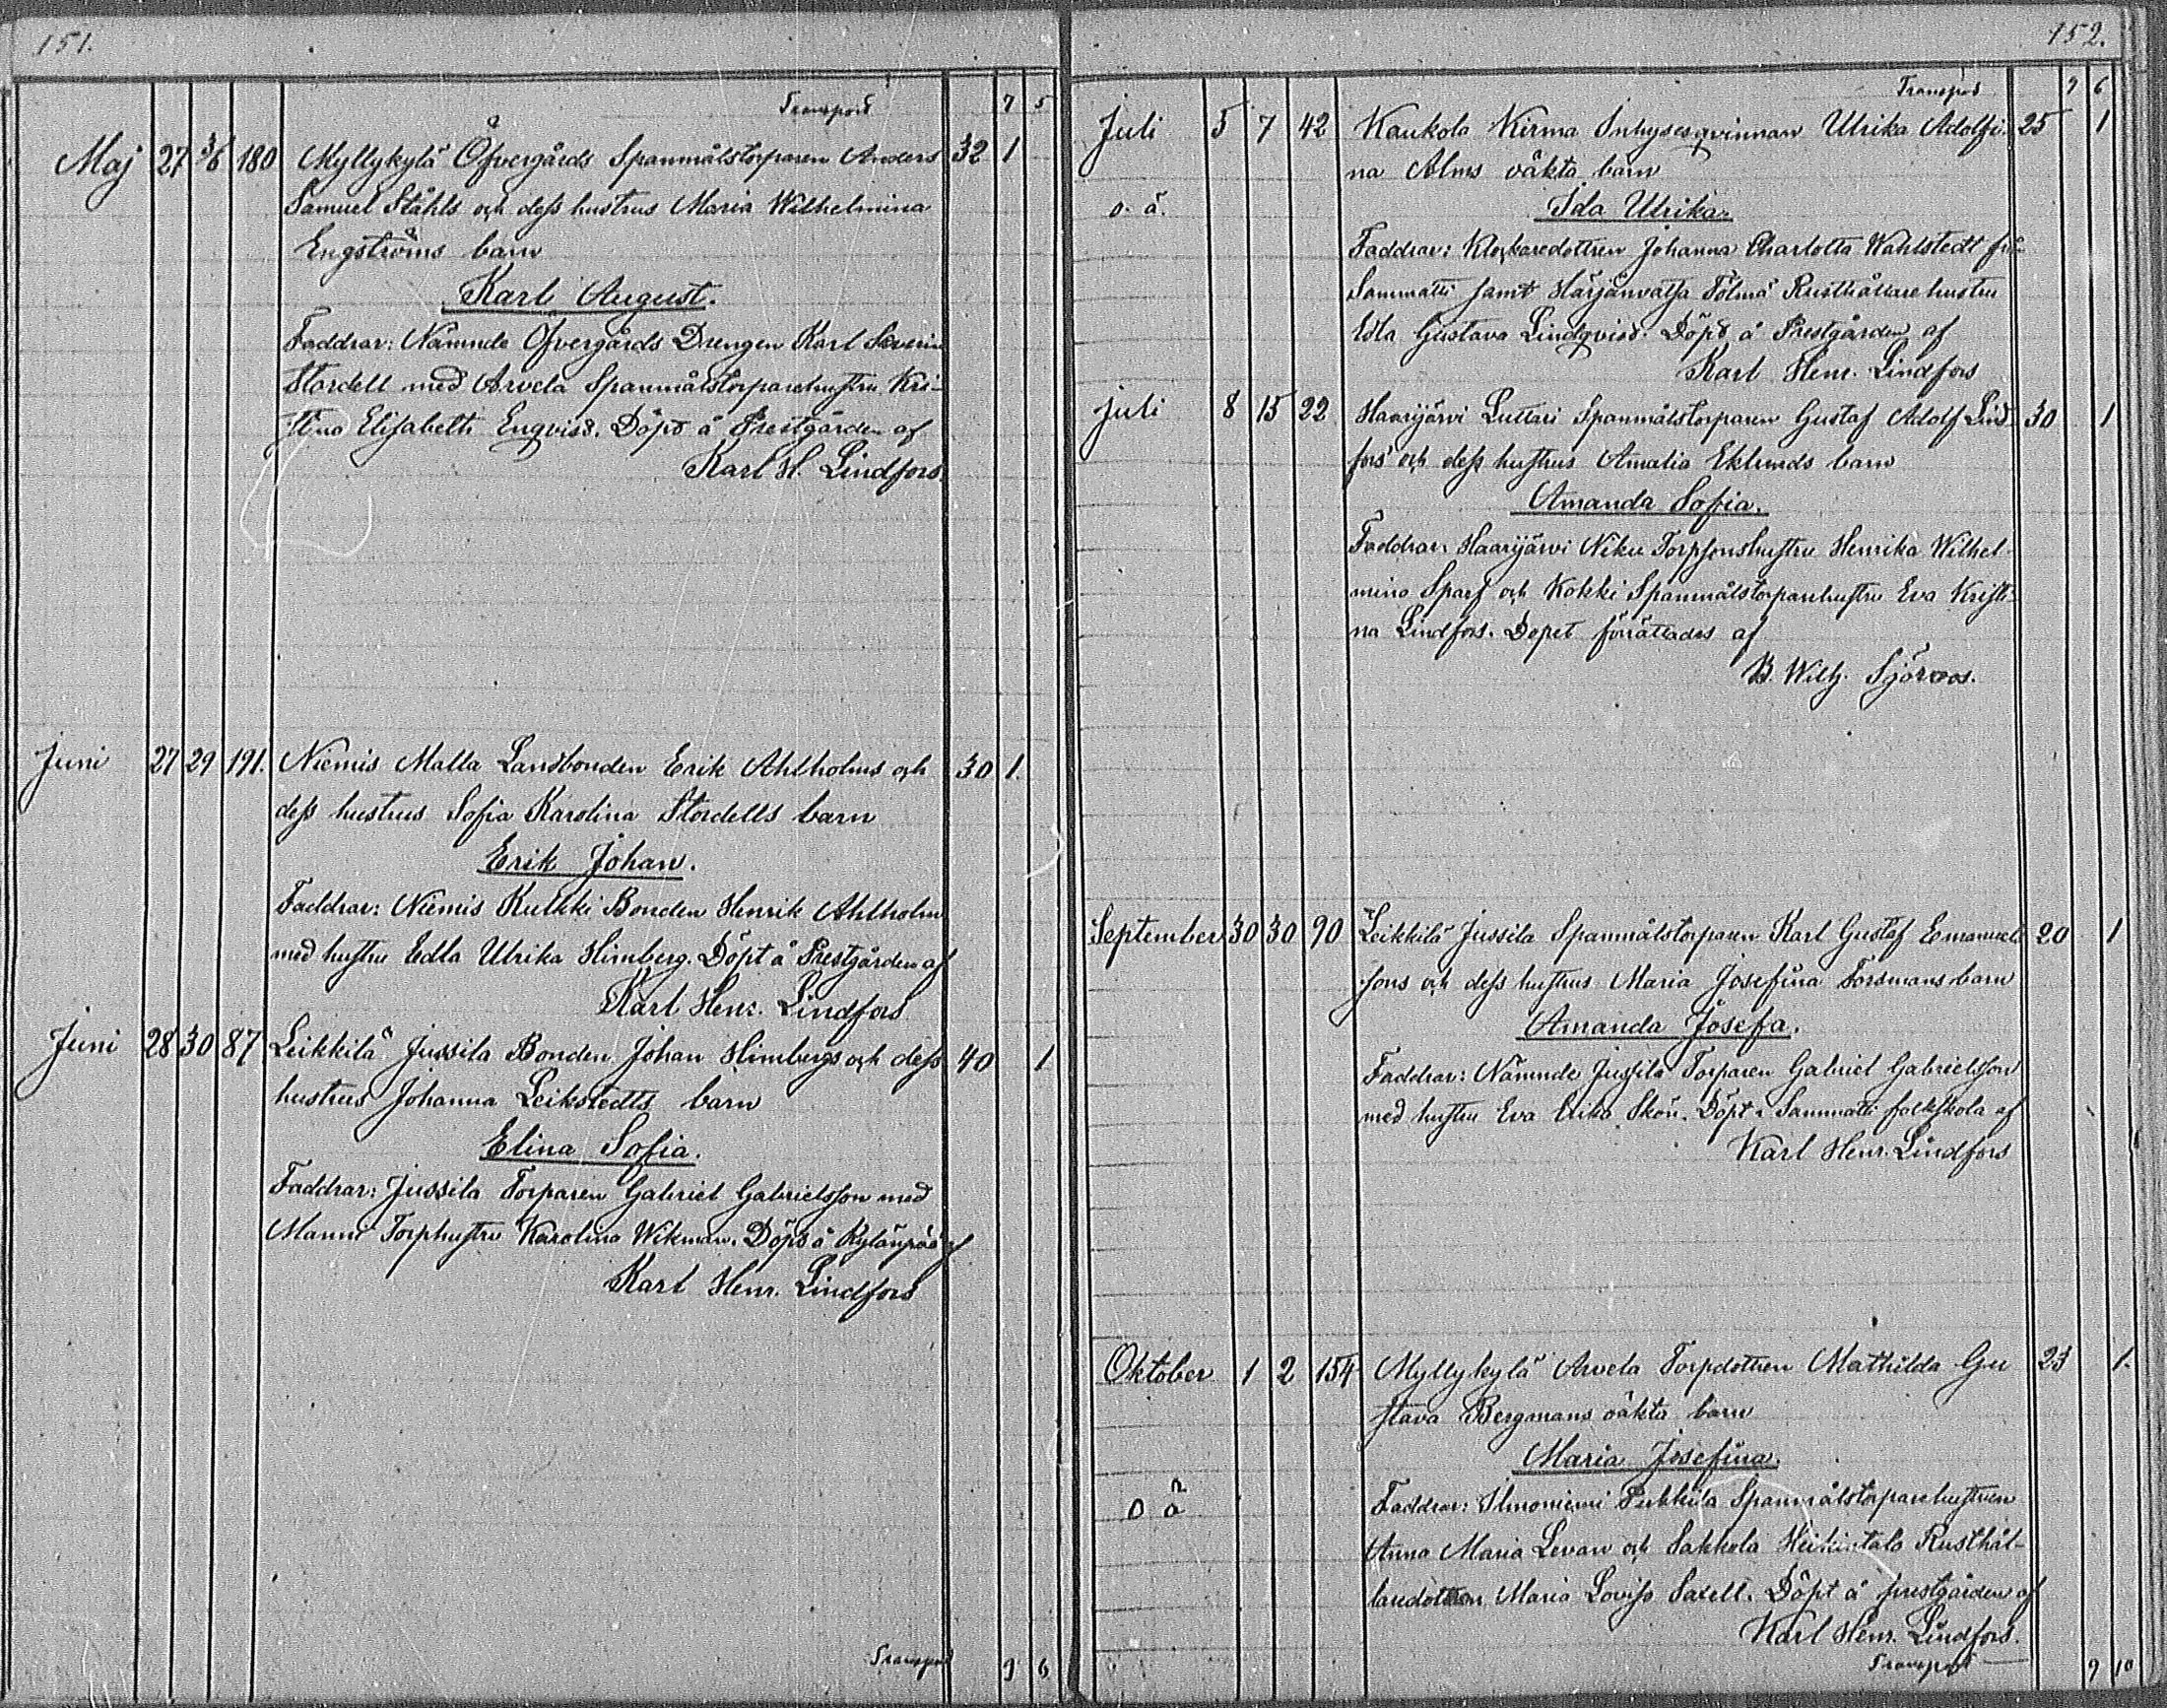 151.
Transport 7 5
Maj 27 3/6 180 Myllykylä Öfvergårds Spanmålstorparen Anders 32 1
Samuel Ståhls och dess hustrus Maria Wilhelmina
Engströms barn
Karl August.
Faddrar: Nämnde Öfvergårds Drengen Karl Severin
Stordell med Arvela Spanmålstorparehustru Kri-
stina Elisabeth Enqvist. Döpt å Prestgården af
Karl H. Lindfors.
Juni 27 29 191. Niemis Malla Landbonden Erik Ahlholms och 30 1.
dess hustrus Sofia Karolina Stordells barn
Erik Johan.
Faddrar: Niemis Kulkki Bonden Henrik Ahlholm
med hustru Edla Ulrika Himberg. Döpt å Prestgården af
Karl Henr. Lindfors
Juni 28 30 87 Leikkilä Jussila Bonden Johan Himbergs och dess 40 1
hustrus Johanna Leikstedts barn
Elina Sofia.
Faddrar: Jussila Torparen Gabriel Gabrielsson med
Manni Torphustru Karolina Wikman. Döpt å Kylänpää af
Karl Henr. Lindfors
Transport 9 6
152.
Transport 9 6
Juli 5 7 42 Kaukola Kirma Inhysesqvinnan Ulrika Adolfi- 25 1
na Alms oäkta barn
o. ä. Ida Ulrika.
Faddrar: Klockaredottren Johanna Charlotta Wahlstedt från
Sammatti samt Härjänvatsa Tölmä Rusthållarehustru
Edla Gustava Lindqvist. Döpt å Prestgården af
Karl Henr. Lindfors
Juli 8 15 22 Haarijärvi Luttari Spanmålstorparen Gustaf Adolf Lind- 30 1
fors' och dess hustrus Amalia Eklunds barn
Amanda Sofia.
Faddrar: Haarijärvi Niku Torpsonshustru Henrika Wilhel-
mina Sparf och Kokki Spanmålstorparehustru Eva Kristi-
na Lindfors. Dopet förrättades af
B. Wilh. Sjöroos.
September 30 30 90 Leikkilä Jussila Spanmålstorparen Karl Gustaf Emanuels- 20 1
sons och dess hustrus Maria Josefina Forsmans barn
Amanda Josefa.
Faddrar: Nämnde Jussila Torparen Gabriel Gabrielsson
med hustru Eva Erika Skön. Döpt i Sammatti folkskola af
Karl Henr. Lindfors
Oktober 1 2 154 Myllykylä Arvela Torpdottren Mathilda Gu 23 1.
stava Bergmans oäkta barn
Maria Josefina.
o ä Faddrar: Ilmoniemi Pukkila Spanmålstorparehustrun
Anna Maria Levan och Sakkola Heikintalo Rusthål-
laredottren Maria Lovisa Saxell. Döpt å prestgården af
Karl Henr. Lindfors.
Transport 9 10